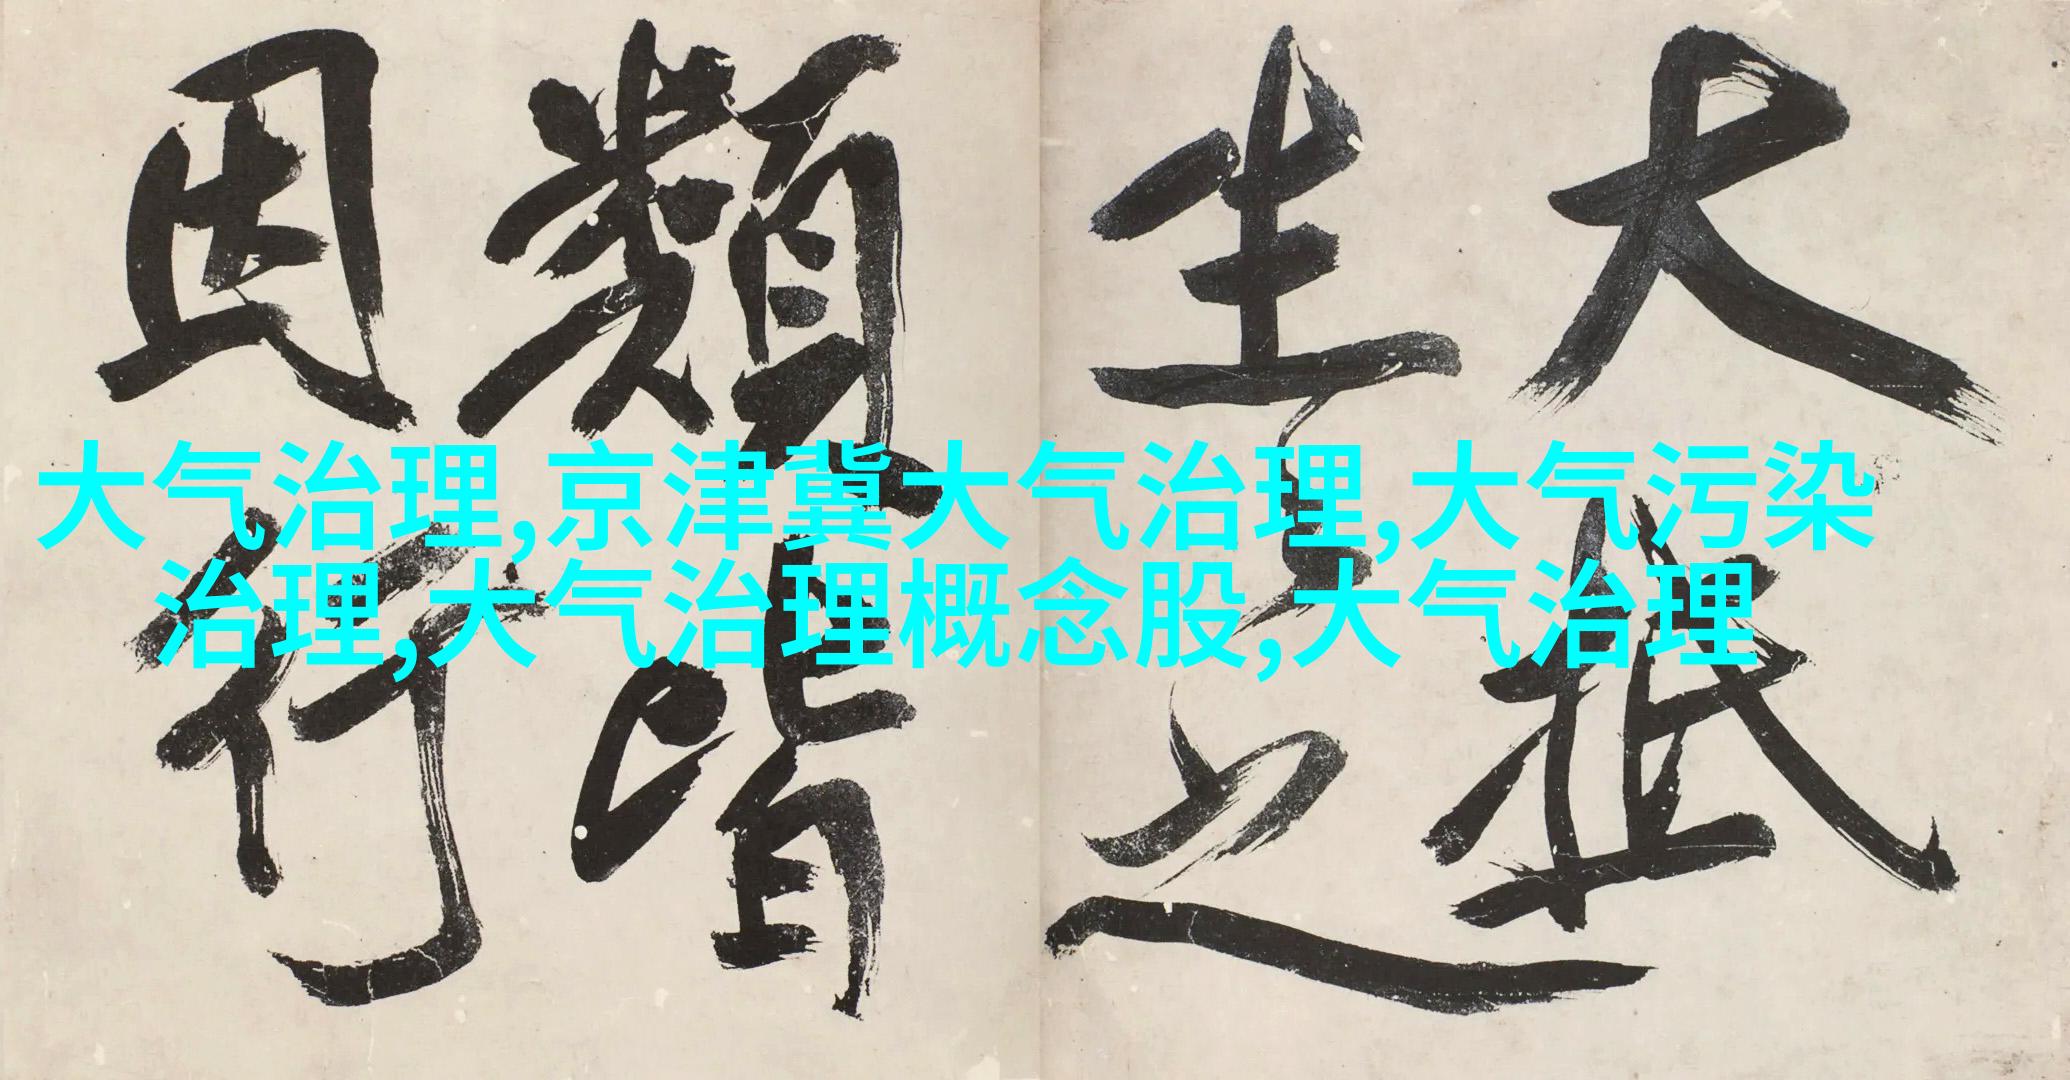 大抵
生之
類皆
因行
大气治理,京津冀大气治理,大气污染
治理,大气治理概念股,大气治理